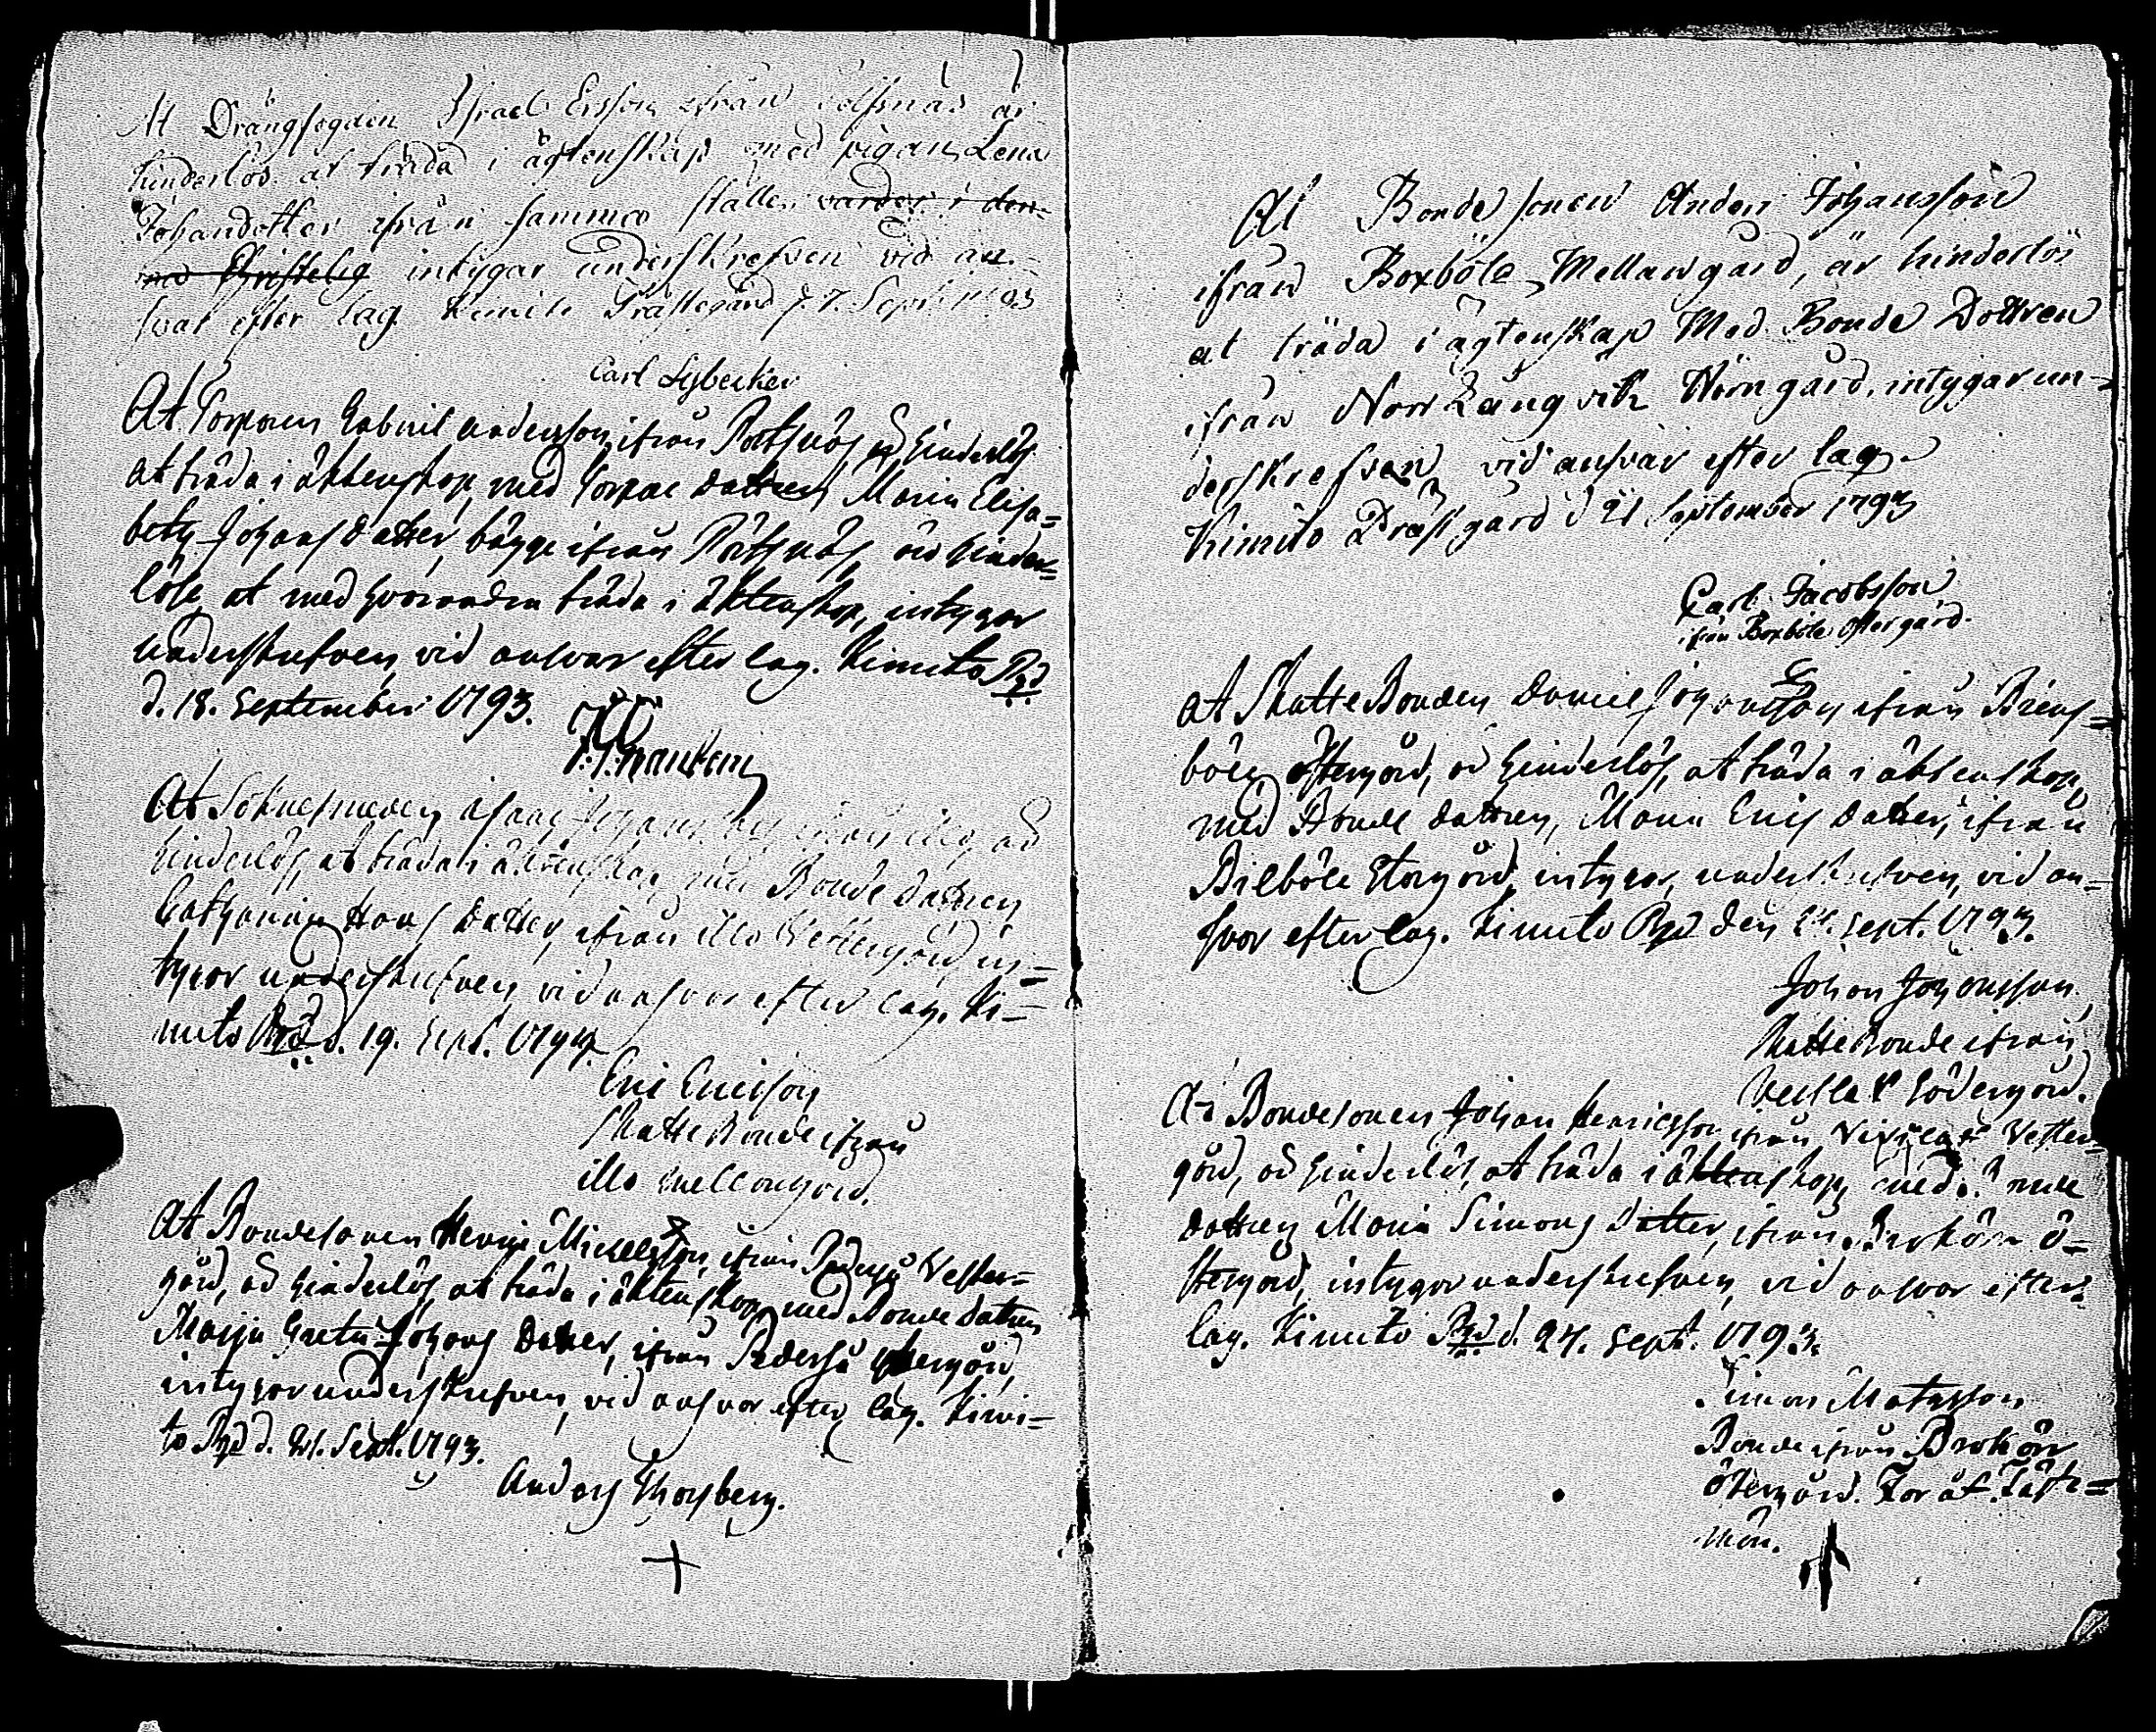 At Drängfogden Israel Ersson ifrån Sölfsnäs är
hinderlös at träda i ägtenskap med pigan Lena
Johansdotter ifrån samma ställe varder i den-
med Christelig intygar underskrefven vid an-
svar efter lag Kimito Prästegård d. 7. Sept. 1793
Carl Lybecker
At Torparen Gabriel Andersson ifrån Pörtsnäs är hinderlös
at träda i äktenskap, med Torpare dottren Maria Elisa=
beth Johans Dotter, bägge ifrån Pörtsnäs äro hinder=
löse at med hvarandra träda i äktenskap, intygar
underskrefven, vid ansvar efter lag. Kimito Pgd
d. 18. September 1793.
At Söknesmeden Isaac Johansson ifrån Illo, är
hinderlös, at träda i äktenskap, med Bonde dottren
Catharina Hans Dotter, ifrån Illo Westergård, in=
tygar underskrefven, vid ansvar efter lag. Ki=
mito Pgd d. 19. Sept. 1793.
Eric Ericsson
Skatte Bonde ifrån
Illo Mellangård.
At Bondesonen Henric Mickelsson, ifrån Pederså Vester=
gård, är hinderlös, at träda i äktenskap, med Bonde dottren
Maija Greta Johans Dotter, ifrån Pederså Östergård,
intygar underskrefven, vid ansvar efter lag. Kimi=
to Pgd d. 21. Sept. 1793.
Anders Thorsberg.
At Bonde sonen Anders Johansson
ifrån Boxböle Mellangård, är hinderlös
at träda i ägtenskap Med Bonde Dottren
ifrån Norr Långvik Norrgård, intygar un-
derskrefven vid ansvar efter lag.
Kimito Prästgård d 21 September 1793
Carl Jacobsson
ifrån Boxböle Östergård.
At Skatte Bonden Daniel Johansson ifrån Brens=
böle Östergård, är hinderlös, at träda i äktenskap,
med Bonde dottren, Maria Erics Dotter, ifrån
Bilböle Storgård, intygar, underskrefven, vid an=
svar efter lag. Kimito Pgd den 24. Sept. 1793.
Johan Johansson,
Skatte Bonde ifrån
Södergård.
At Bondesonen Johan Henricsson ifrån Vester=
gård, är hinderlös, at träda i äktenskap, med Bonde
dottren Maria Simons Dotter, ifrån Brokärr Ö=
stergård, intygar underskrefven, vid ansvar efter
lag. Kimito Pgd d. 24. Sept. 1793.
Simon Matsson
Bonde ifrån Brokärr
Östergård. För åt. Fäste=
mön.